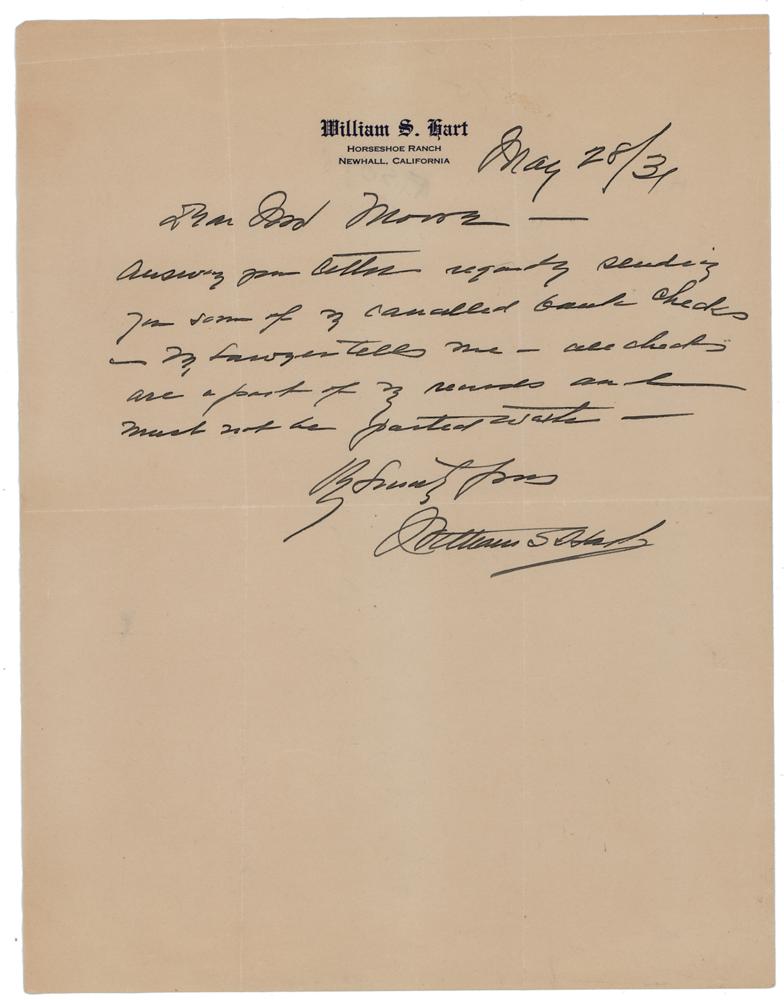 William S. Hart
HORSESHOE RANCH
NEWHALL, CALIFORNIA
May 28/31
Dear
Answering your letter regarding sending
you some of my cancelled bank checks
— My Lawyer tells me — all checks
are a part of my records and
must not be parted with —
Yours
William S Hart